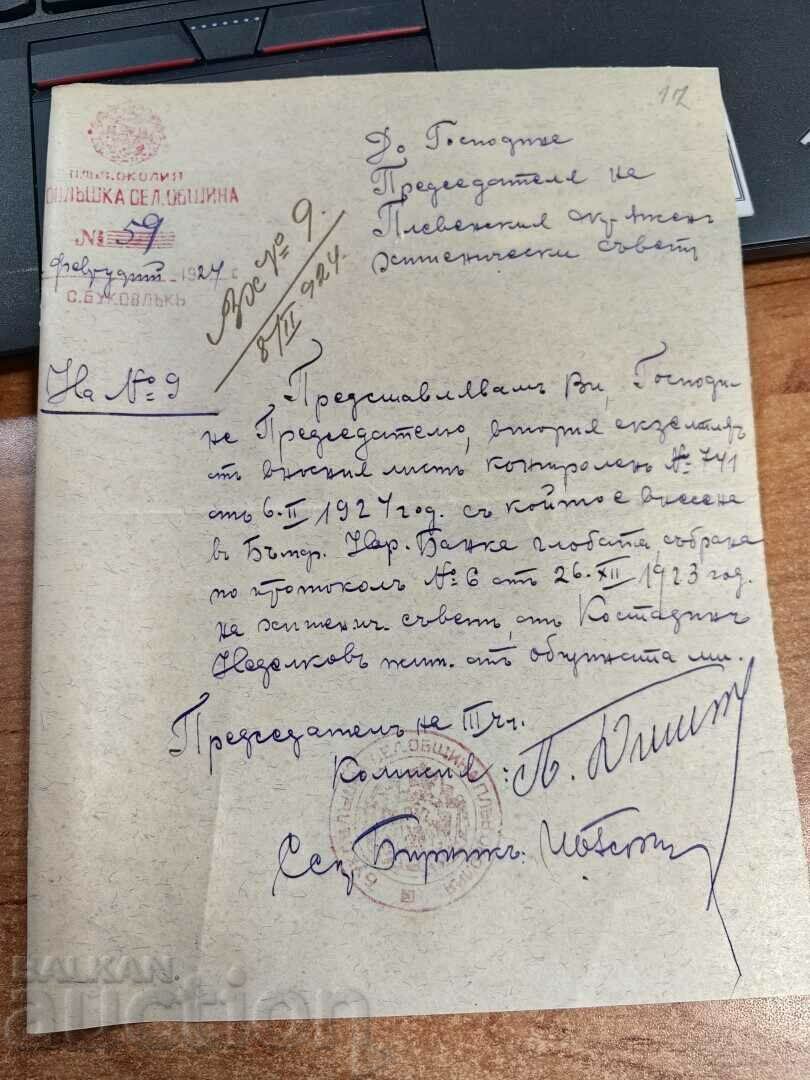 17
ПЛѢВ.ОКОЛИЯ
СЕЛ.ОБЩИНА
№ 59
февруарий 1924 г
С.БУКОВЛЪКЪ
Вх № 9.
8/II 924.
До Господина
Председателя на
Плевенския окръжен
жтенически съветъ
На № 9
Представлявамъ Ви, Господи-
не Председателю, втория екземпляръ
отъ вносния листъ контроленъ № 741
отъ 6.II 1924 год. съ който е внесена
въ Бълг. Нар. Банка глобата събрана
по протоколъ № 6 отъ 26.XII 1923 год.
на жтенич. съветъ, отъ Костадинъ
Неделковъ жит. отъ общината ми.
Председателъ на III чл.
Комисия:
Сек. Бирникъ:
СЕЛ.ОБЩИНА
BALKAN
auction